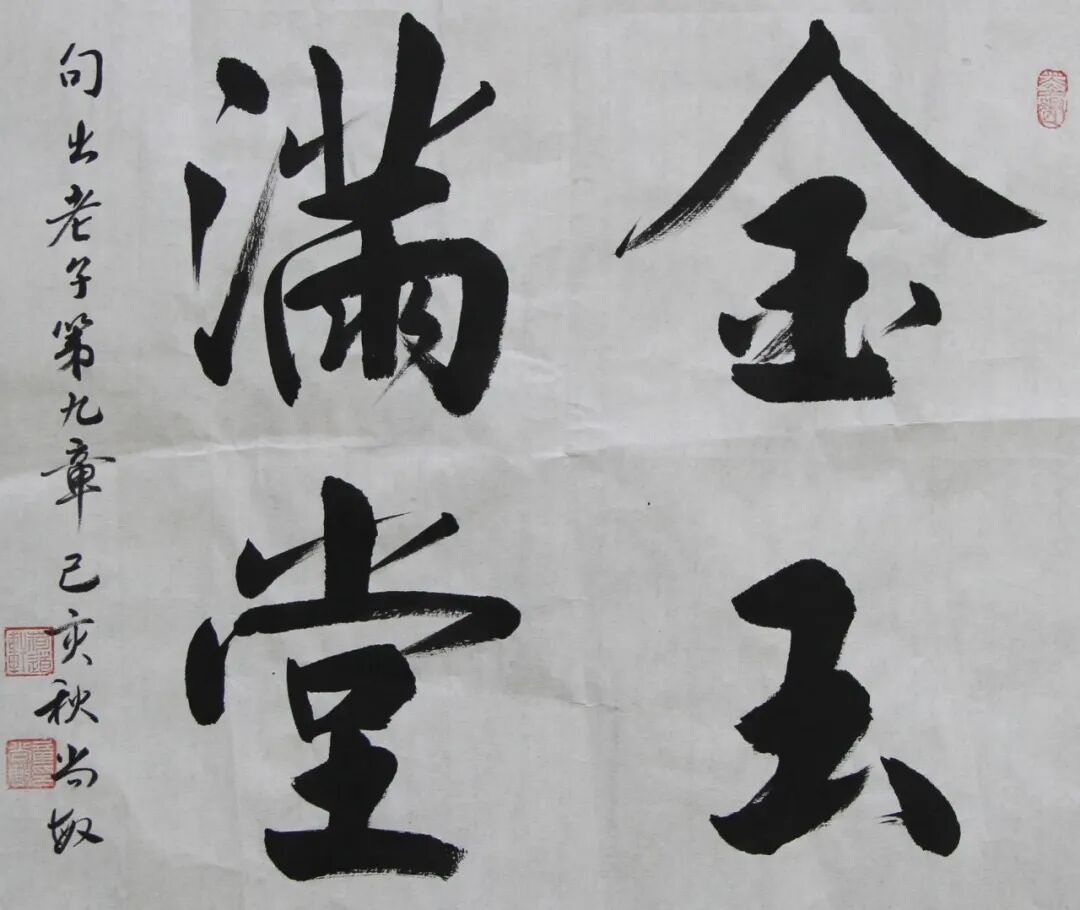 金玉
滿堂
句出老子第九章己亥秋尚敏